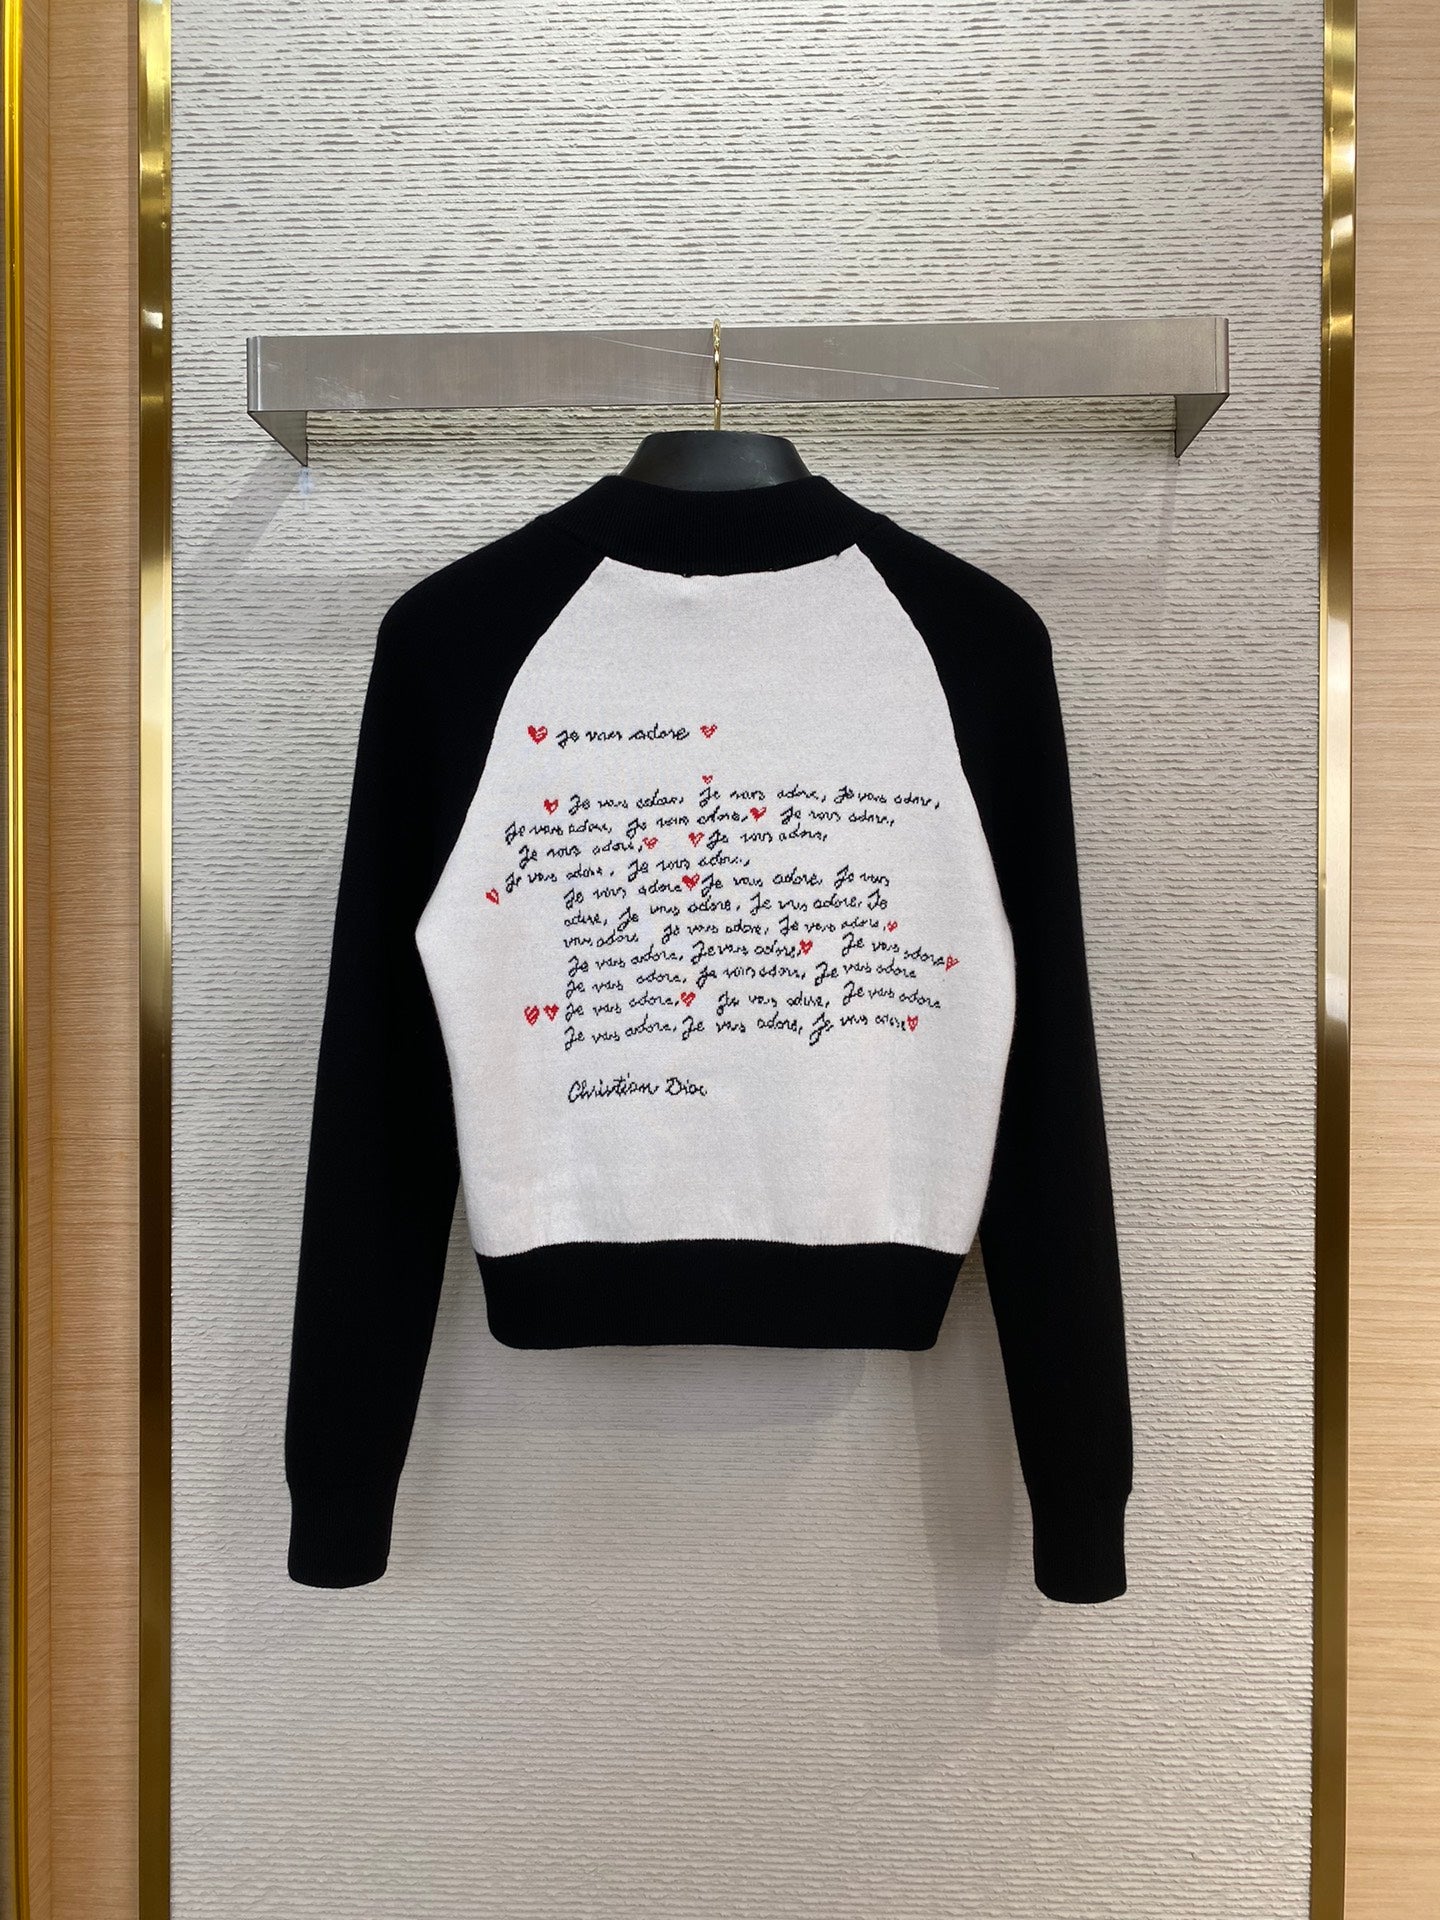 Je vous adore
Je vous adore, Je vous adore, Je vous adore,
Je vous adore, Je vous adore, Je vous adore,
Je vous adore, Je vous adore,
Je vous adore, Je vous adore,
Je vous adore Je vous adore, Je vous
adore, Je vous adore, Je vous adore, Je
vous adore Je vous adore, Je vous adore,
Je vous adore, Je vous adore, Je vous adore
Je vous adore, Je vous adore, Je vous adore
Je vous adore, Je vous adore, Je vous adore
Je vous adore, Je vous adore, Je vous adore
Christian Dior